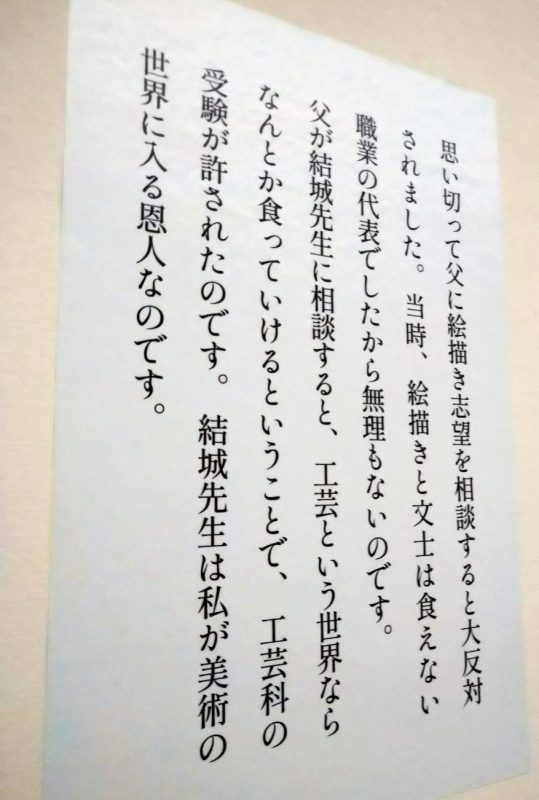 思い切って父に絵描き志望を相談すると大反対
されました。当時、絵描きと文士は食えない
職業の代表でしたから無理もないのです。
父が結城先生に相談すると、工芸という世界なら
なんとか食っていけるということで、工芸科の
受験が許されたのです。結城先生は私が美術の
世界に入る恩人なのです。